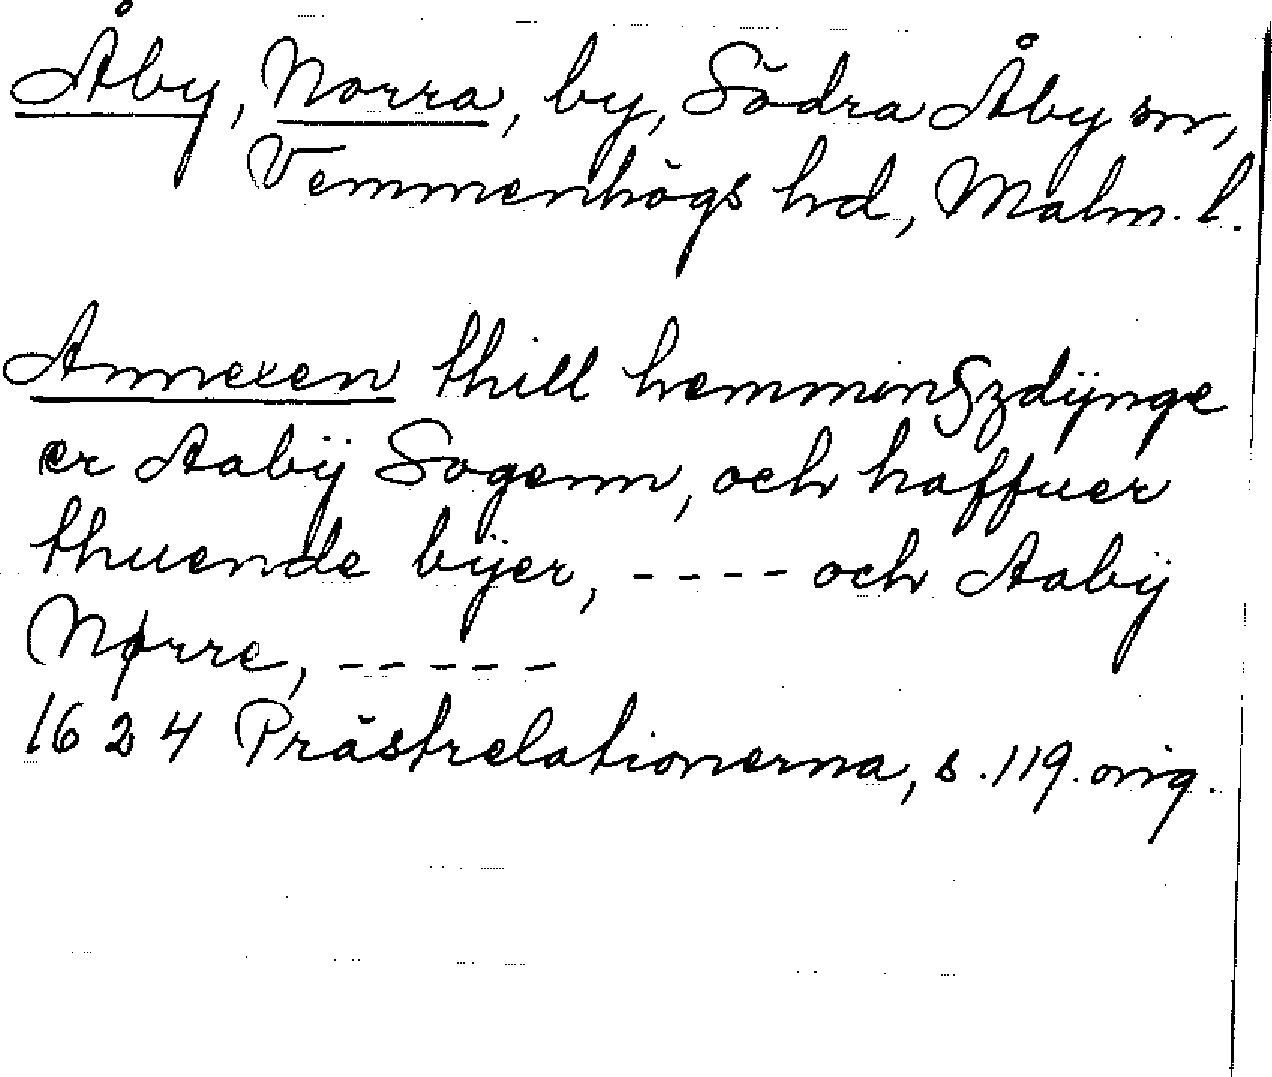 Åby, Norra, by, Södra Åby sn,
Vemmenhögs hd, Malm. l.
Annexen thill hemmingzdÿnge
er Aabÿ Sogenn, och haffuer
thuende bÿer, ---- och Aabÿ
Nørre, -----
1624 Prästrelationerna, s. 119. orig.